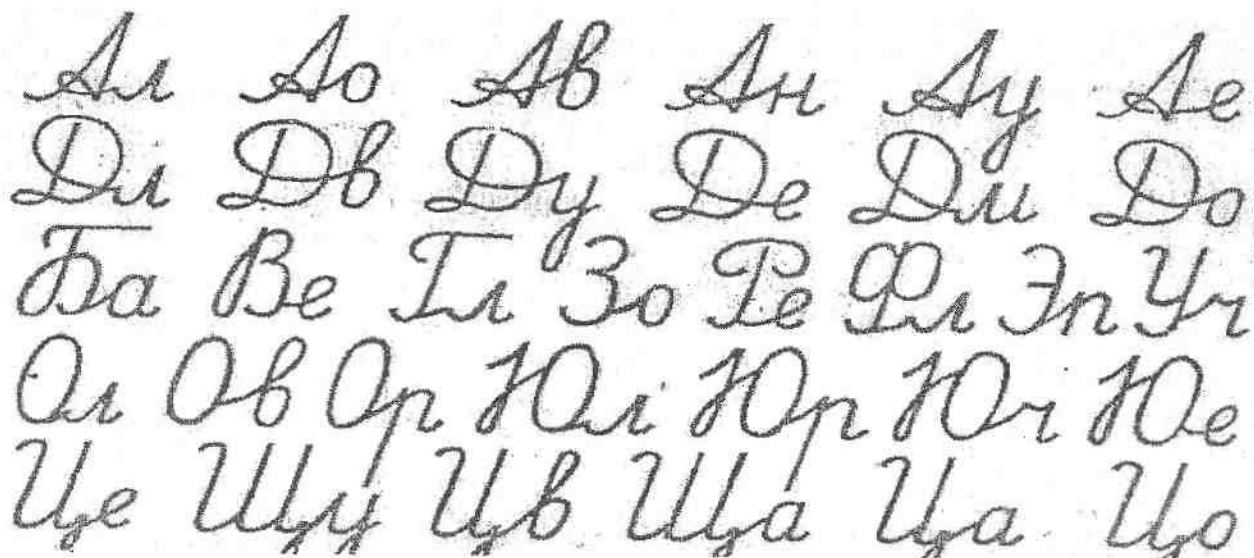 Ал Ао Ав Ан Ау Ае
Дл Дв Ду Де Дм До
Ба Ве Гл Зо Ре Фл Эп Уч
Ол Ов Ор Юл Юр Юч Юе
Це Щу Цв Ща Ца Цо